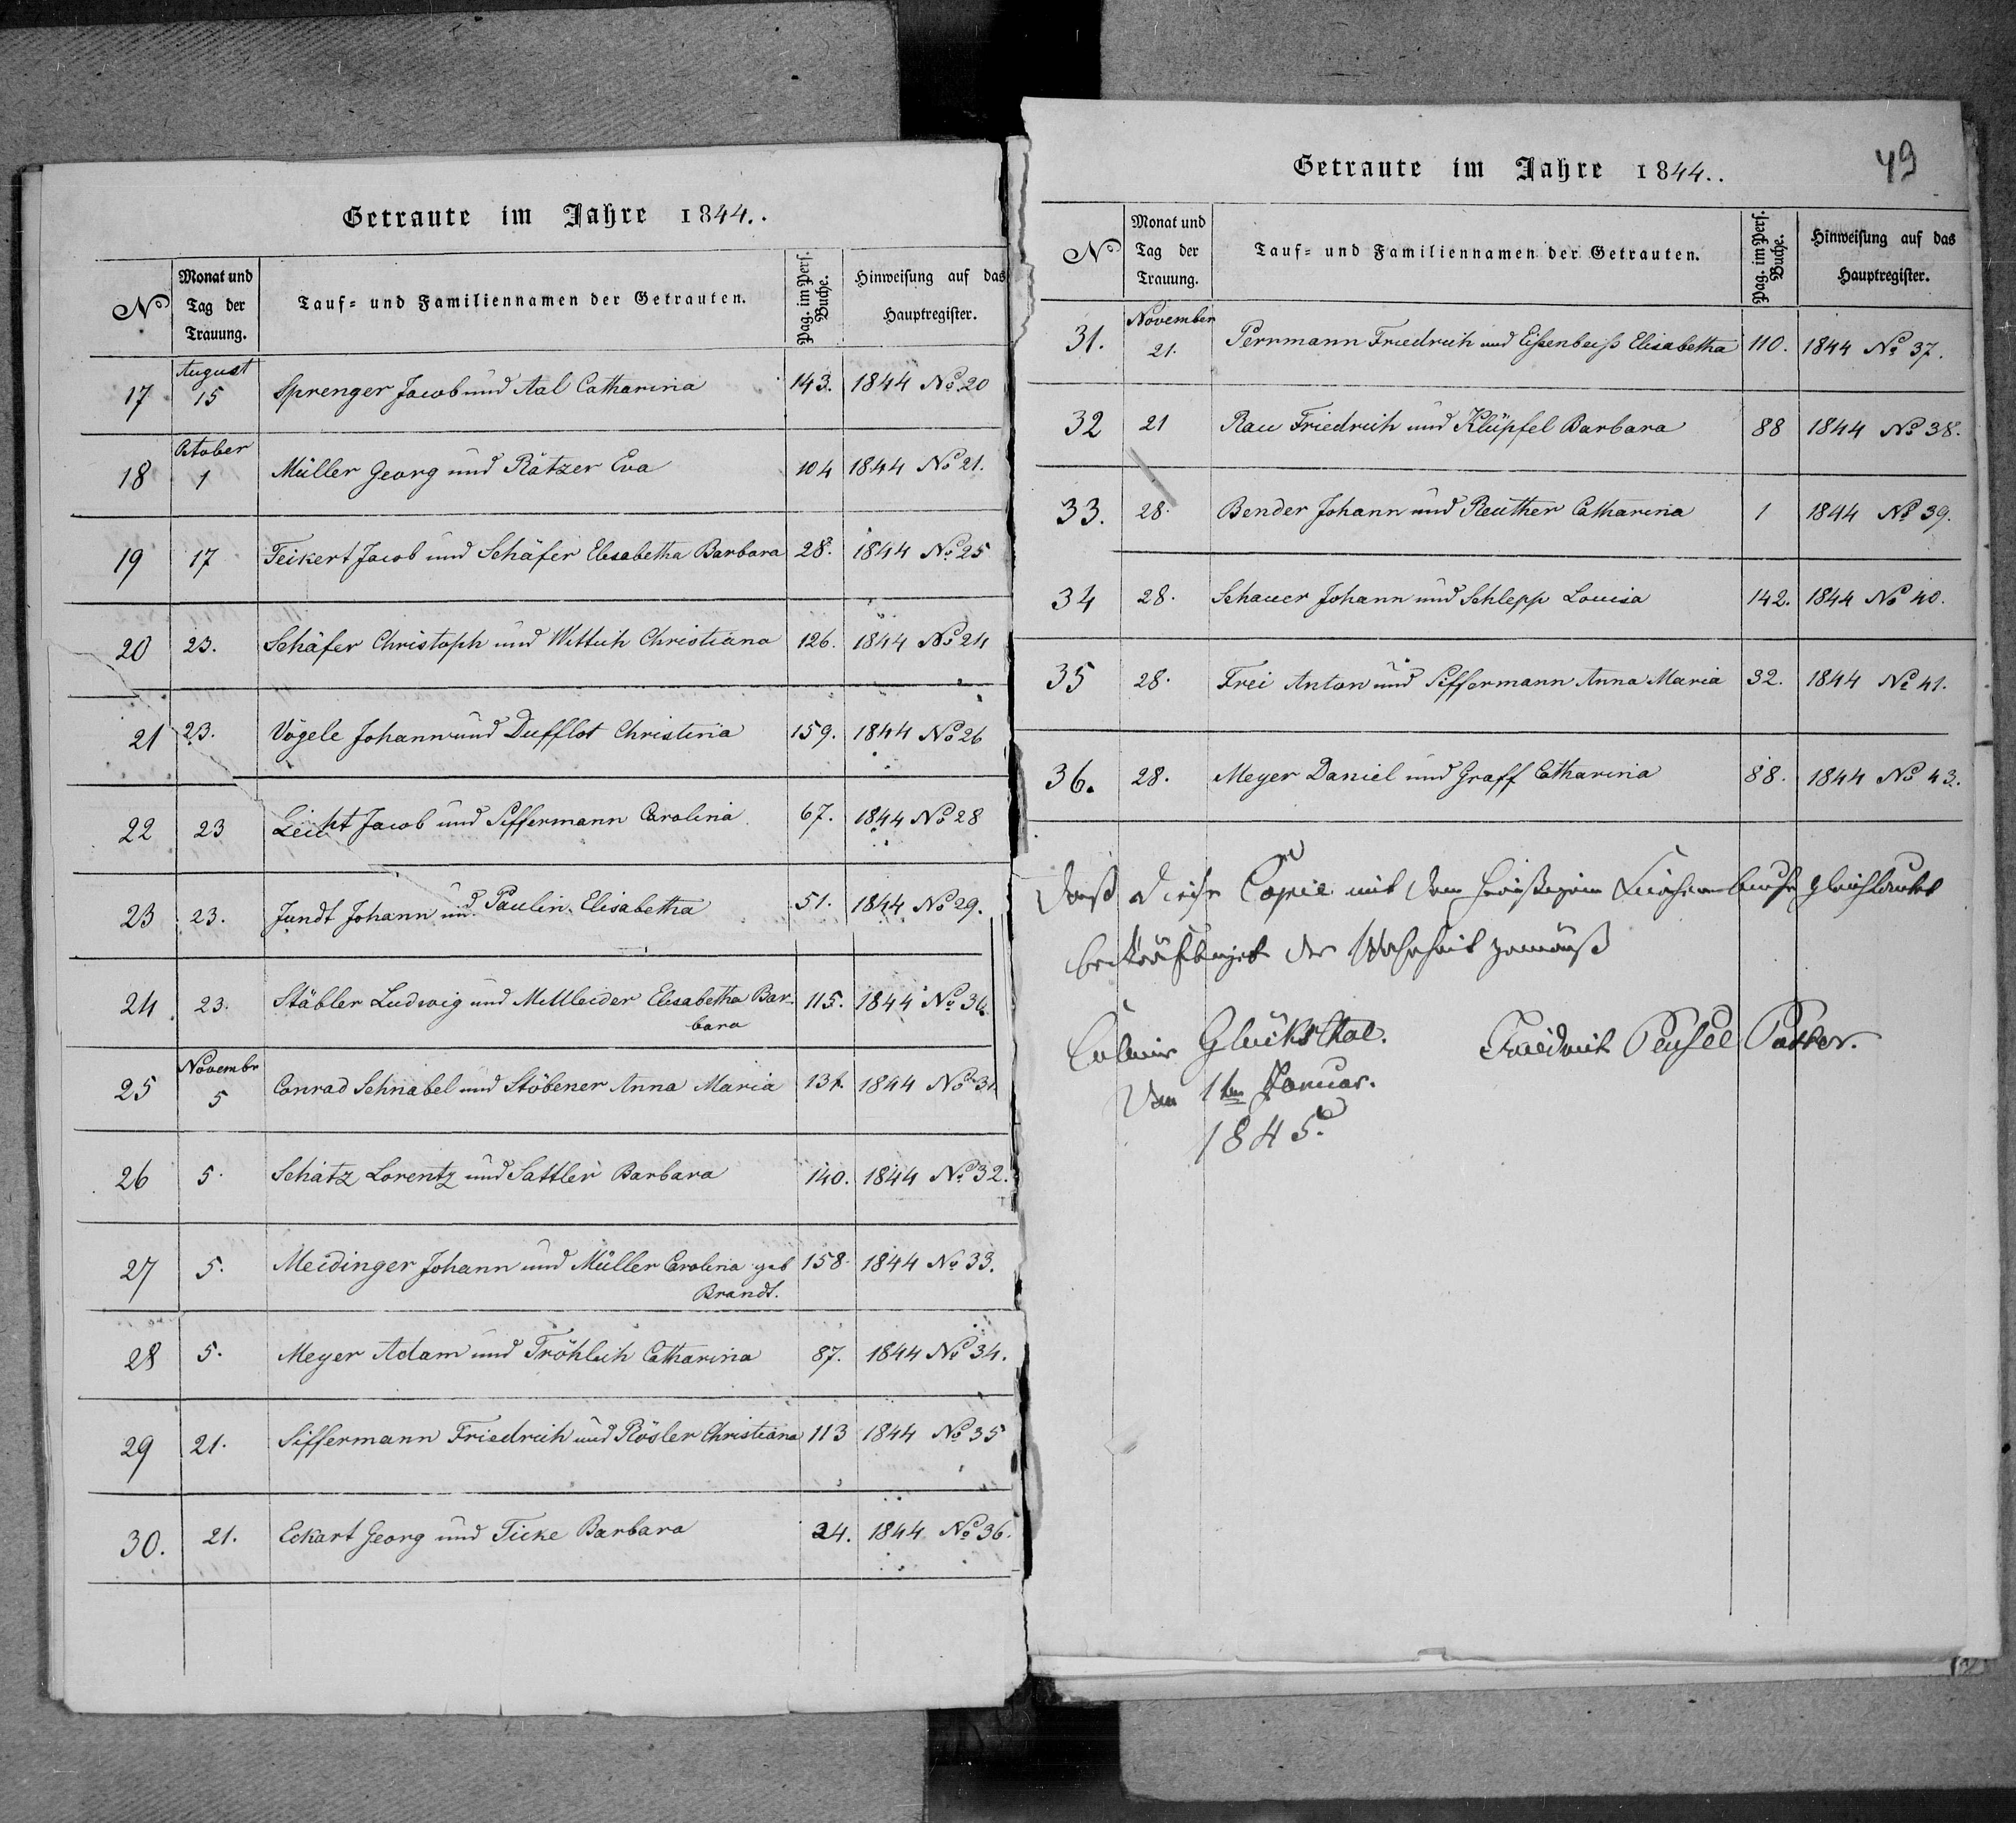 Getraute im Jahre 1844..
N Monat und Tag der Trauung. Tauf- und Familiennamen der Getrauten. Pag. im Pers. Buche. Hinweisung auf das Hauptregister.
August
17 15 Sprenger Jacob und Aal Catharina 143. 1844 No 20
October
18 1 Müller Georg und Rätzer Eva 104 1844 No 21.
19 17 Feikert Jacob und Schäfer Elisabetha Barbara 28. 1844 No 25
20 23. Schäfer Christoph und Wittich Christiana 126. 1844 No 24
21 23. Vögele Johann und Dufflot Christina 159. 1844 No 26
22 23 Leicht Jacob und Siffermann Carolina 67. 1844 No 28
23 23. Jundt Johann und Paulin Elisabetha 51. 1844 No 29.
24 23. Stäbler Ludwig und Mittleider Elisabetha Bar- 115. 1844 No
bara
Novembr
25 5 Conrad Schnabel und Stöbener Anna Maria 1844 No 31
26 5. Schatz Lorentz und Sattler Barbara 140. 1844 No 32.
27 5. Meidinger Johann und Müller Carolina geb 158. 1844 No 33.
Brandt.
28 5. Meyer Adam und Fröhlich Catharina 87. 1844 No 34.
29 21. Siffermann Friedrich und Rösler Christiana 113 1844 No 35
30. 21. Eckart Georg und Ficke Barbara 24. 1844 No 36.
49
Getraute im Jahre 1844..
N Monat und Tag der Trauung. Tauf- und Familiennamen der Getrauten. Pag. im Pers. Buche. Hinweisung auf das Hauptregister.
November
31. 21. Pernmann Friedrich und Eissenbeiss Elisabetha 110. 1844 No 37.
32 21 Rau Friedrich und Klüpfel Barbara 88 1844 No 38.
33. 28. Bender Johann und Reuther Catharina 1 1844 No 39.
34 28. Schauer Johann und Schlepp Louisa 142. 1844 No 40.
35 28. Frei Anton und Siffermann Anna Maria 32. 1844 No 41.
36. 28. Meyer Daniel und Graff Catharina 88. 1844 No 43.
Daß diese Copie mit dem hiesigen Kirchenbuche gleichlautet
bekräftiget der Wahrheit gemäß
Colonie Glücksthal. Friedrich Pensel Pastor.
Den 1ten Januar.
1845.